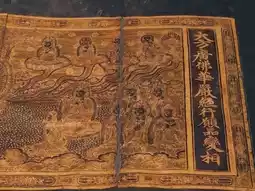 大方廣佛華嚴經行願品變相